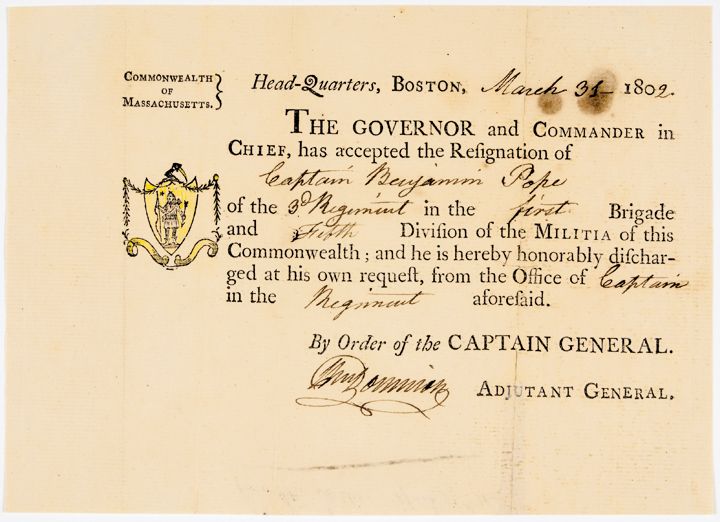 COMMONWEALTH
OF
MASSACHUSETTS.
Head-Quarters, BOSTON, March 31 1802.
THE GOVERNOR and COMMANDER in
CHIEF, has accepted the Reſignation of
Captain Benjamin Pope
of the 3d Regiment in the first Brigade
and Fifth Diviſion of the MILITIA of this
Commonwealth; and he is hereby honorably diſchar-
ged at his own requeſt, from the Office of Captain
in the Regiment aforeſaid.
By Order of the CAPTAIN GENERAL.
ADJUTANT GENERAL.